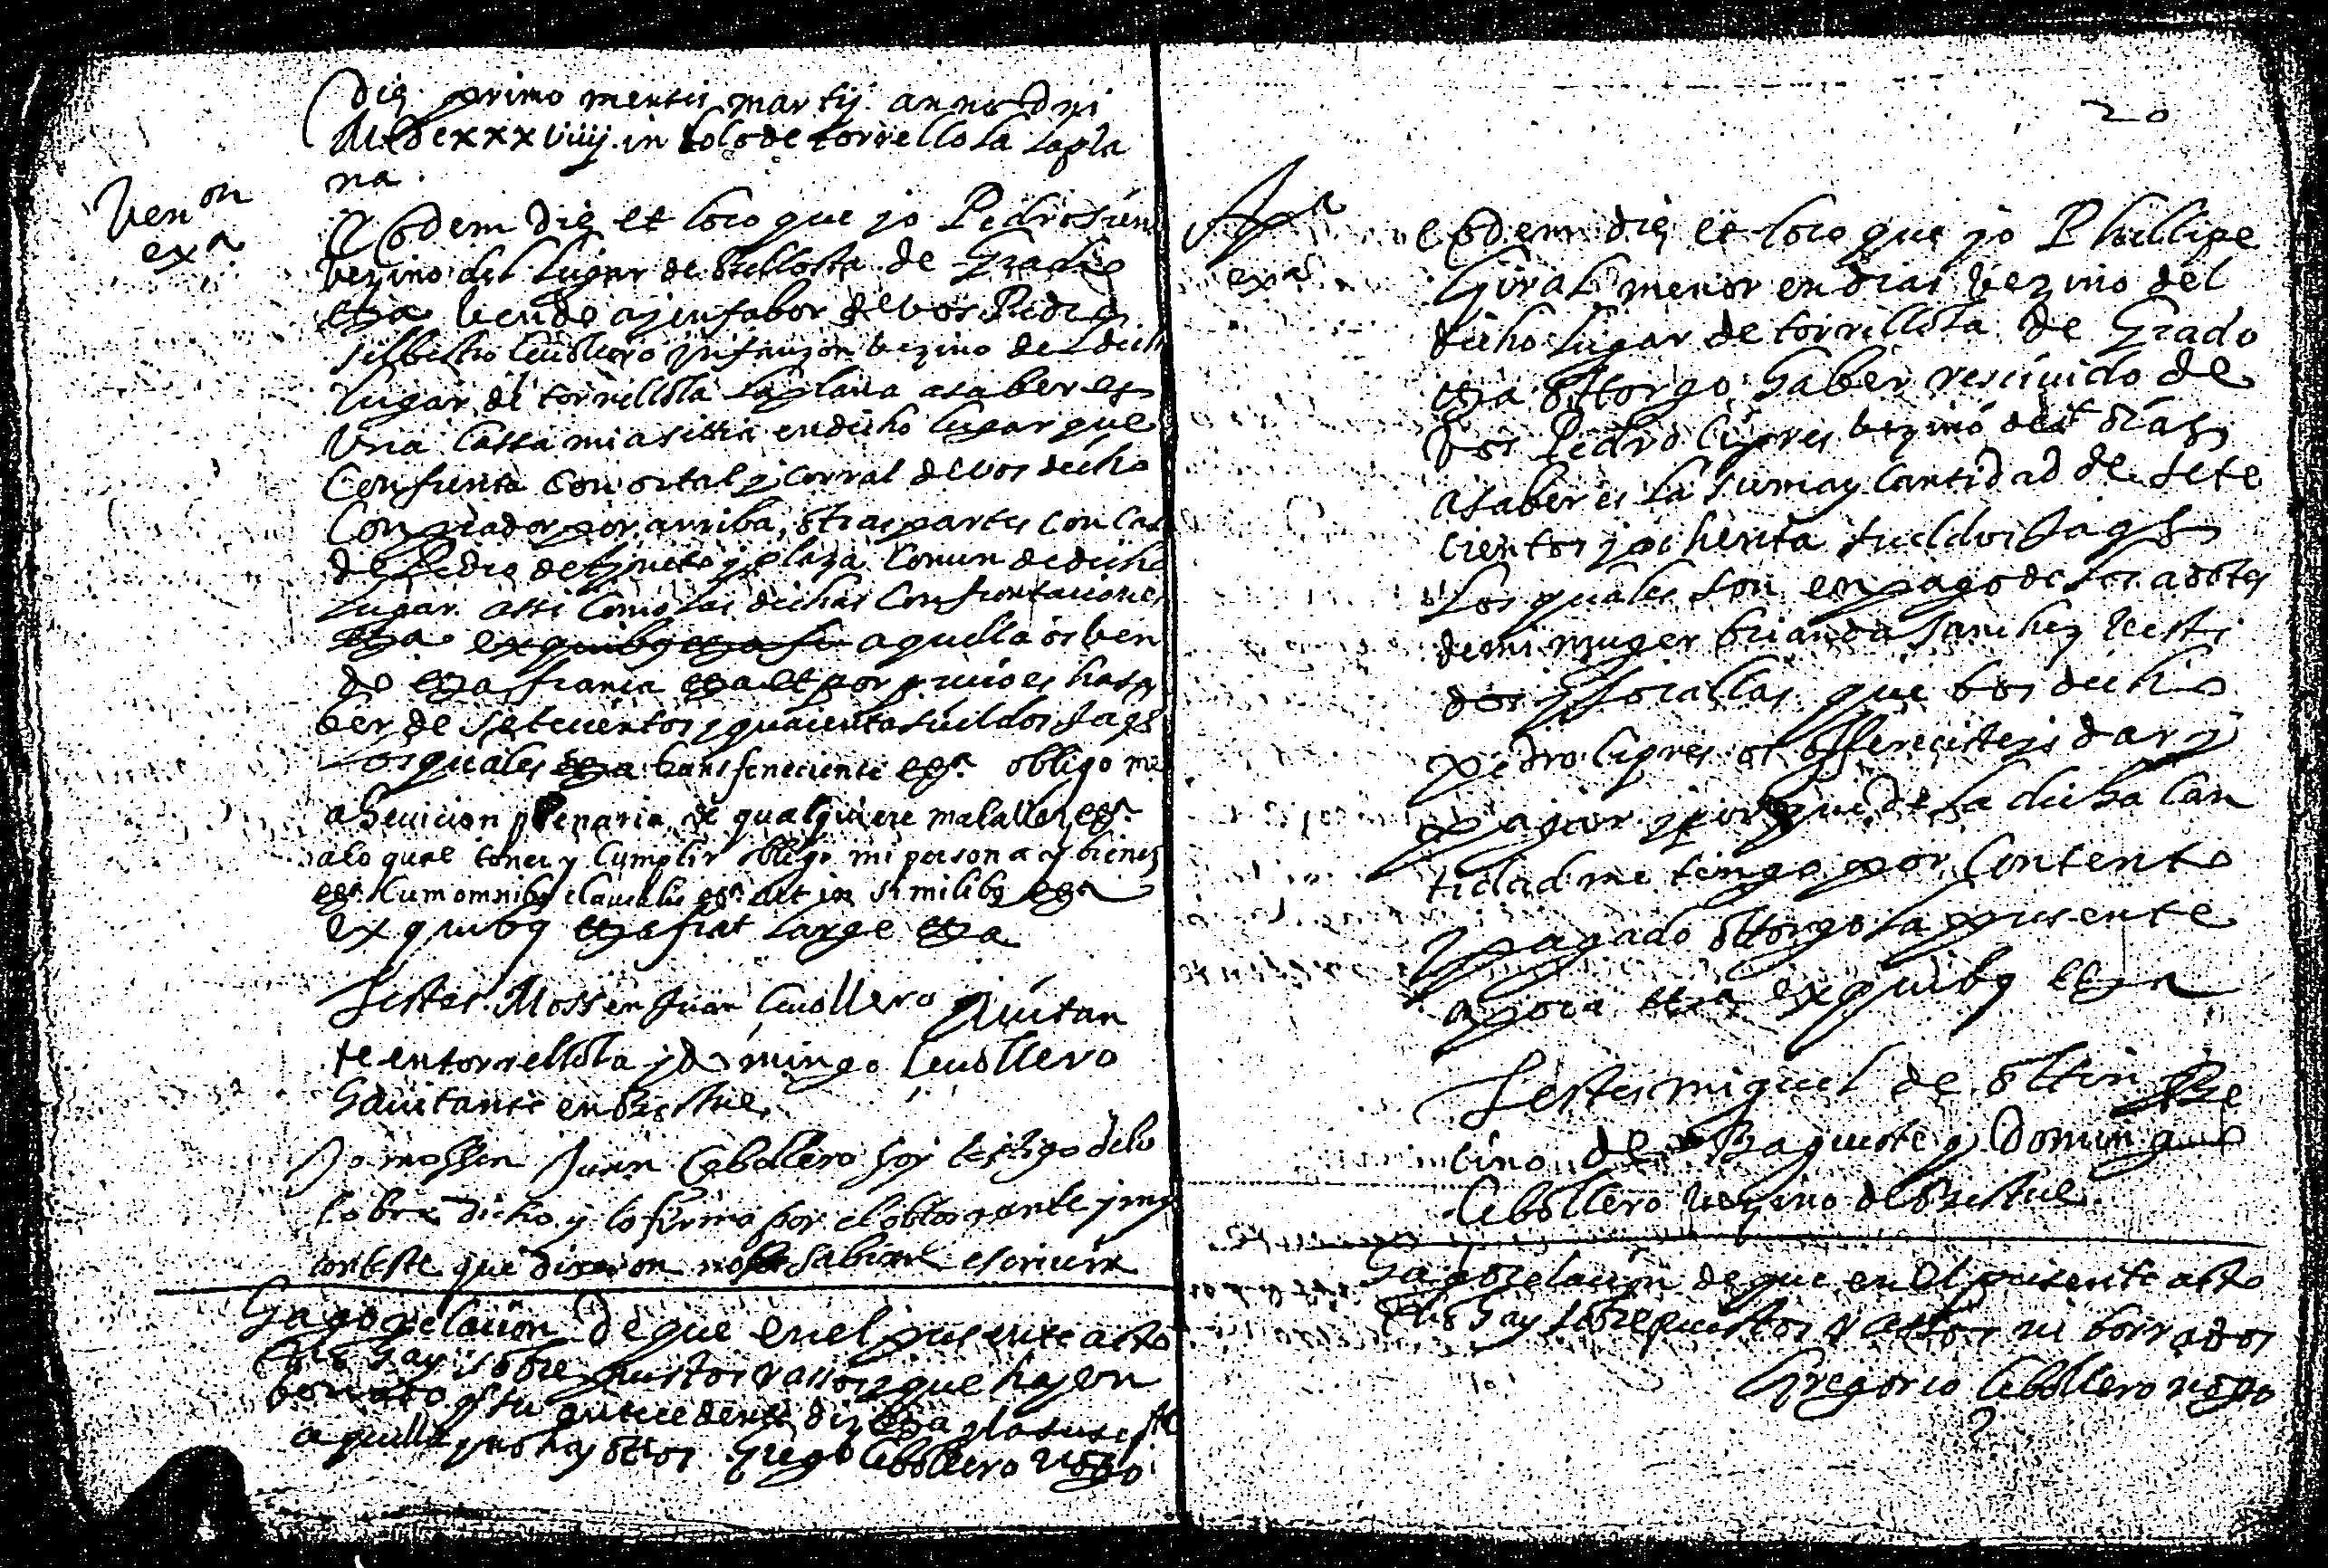 Die primo mensis martij anno dni
MDCxxxviiij in loco de torrellola la pla
na.
Ven on
exa
Eodem die et loco que yo Pedro
vezino del lugar de de Grado
etza vendo a y en fabor de vos Pedro
silbestro Cebollero ynfanzon vezino del dich
lugar de torrellola la plana a saber es
una cassa mia sitia en dicho lugar que
confrenta con ortal y corral de vos dicho
comprador por arriba, otras partes con cas
de Pedro de y plaza comun de dicho
lugar assi como las dichas confrontaciones
etza ex quibq etza aquella os ven
do etza franca etza et por precio es has
ber de setecientos y quarenta sueldos Jaqs
los quales etza transfereciente etza obligo me
a evicion plenaria de qualquiere mala voz etza
a lo qual tener y cumplir obligo mi persona y bienes
etza cum omnibq clausulis etza in similibq etza
ex quibq etza fiat large etza
Testes Mossen Juan Cebollero havitan
te en torrellola y domingo Cebollero
havitante en Bestue
Yo mossen Juan Cebollero soy testigo de lo
sobre dicho y lo firmo por el otorgante y mi
conteste que dixeron no sabian escriuir
Hago relacion de que en el presente acto
no hay sobrepuestos rassos y que hay un
borrado etza
aquella y no hay otros Grego Cebollero noto
20
Apa
exa
eodem die et loco que yo Phellipe
Giral menor en dias vezino del
dicho lugar de torrellola de Grado
etza ottorgo haber rescivido de
vos Pedro Cipres vezino de
a saber es la suma y cantidad de sete
cientos y ochenta sueldos Jaqs
los quales son en pago de los adotes
de mi muger brianda Sanchez vesti
dos y que vos dicho
Pedro Cipres os offerecisteis dar y
pagar y porque de la dicha can
tidad me tengo por contento
y pagado ottorgo la presente
apoca etza ex quibq etza
Testes miguel de oltin ve
cino de Bagueste y Domingo
Cebollero vezino de Bestue
Hago relacion de que en el presente acto
no hay sobrepuestos rassos ni borrados
Gregorio Cebollero noto